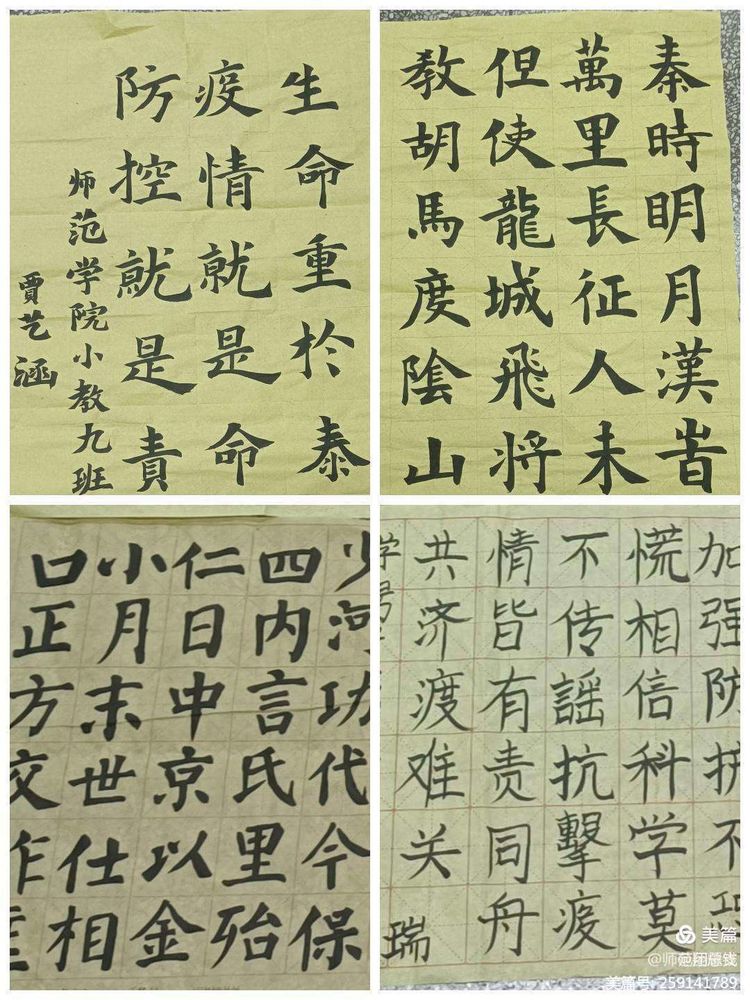 生命重於泰
疫情就是命
防控就是責
师范学院小教九班
贾艺涵
秦時明月漢旹
萬里長征人未
但使龍城飛将
教胡馬度陰山
少河功代今保
四内言氏里殆
仁日中京以金
小月末世仕相
口正方交作
加强防护不恐
慌相信科学莫
不传謡抗擊疫
情皆有责同舟
共济渡难关
学号
瑞
美篇
美篇号: 259141789